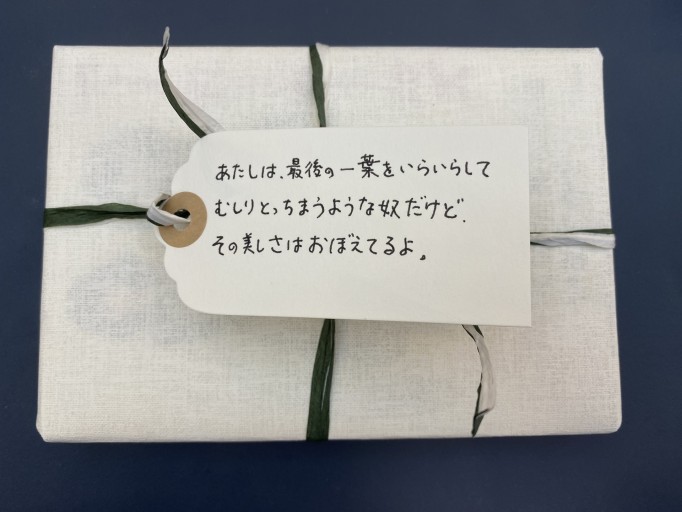 あたしは、最後の一葉をいらいらして
むしりとっちまうような奴だけど、
その美しさはおぼえてるよ。